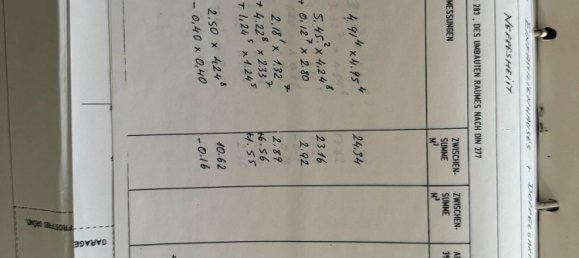 EINFAMILIENHAUSES + DOPPEL
283, DES UMBAUTEN RAUMES NACH DIN 277
MESSUNGEN
ZWISCHEN-
SUMME
M²
ZWISCHEN-
SUMME
M³
4.91⁴ × 4.95⁴ 24.34
5.45² × 4.24⁸ 23.16
+ 0.12⁷ × 2.80 2.92
2.18¹ × 1.32⁷ 2.89
+ 4.22⁸ × 2.33⁷ +6.56
+ 1.24⁵ × 1.24⁵ +1.55
2.50 × 4.24⁸ 10.62
- 0.40 × 0.40 - 0.16
GARAGE
FROSTFREI GRÜND.